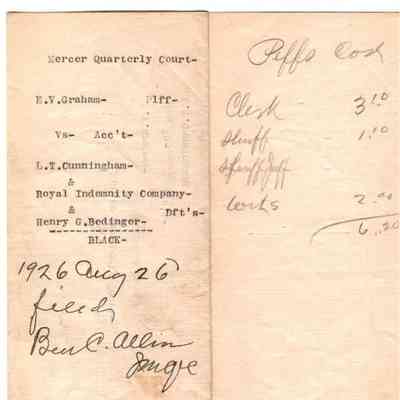 Mercer Quarterly Court-
E.V.Graham- Plff-
Vs- Acc't-
L.T.Cunningham-
&
Royal Indemnity Company-
& Dft's-
Henry G.Bedinger-
BLACK-
1926 Aug 26
filed,
Ben C. Allin
Judge
Plffs Cost
Clerk 3.10
Sheriff 1.10
Sheriff Jeff
2.00
6.20